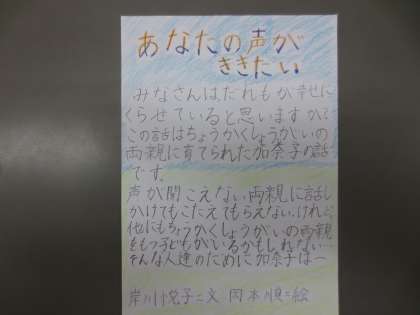 あなたの声が
ききたい
みなさんは、だれもが幸せに
くらせていると思いますか?
この話はちょうかくしょうがいの
両親に育てられた加奈子の話
です。
声が聞こえない両親に話し
かけてもこたえてもらえない、けれど、
他にもちょうかくしょうがいの両親
をもつ子どもがいるかもしれない…
そんな人達のために加奈子は…
岸川悦子=文 岡本順=絵